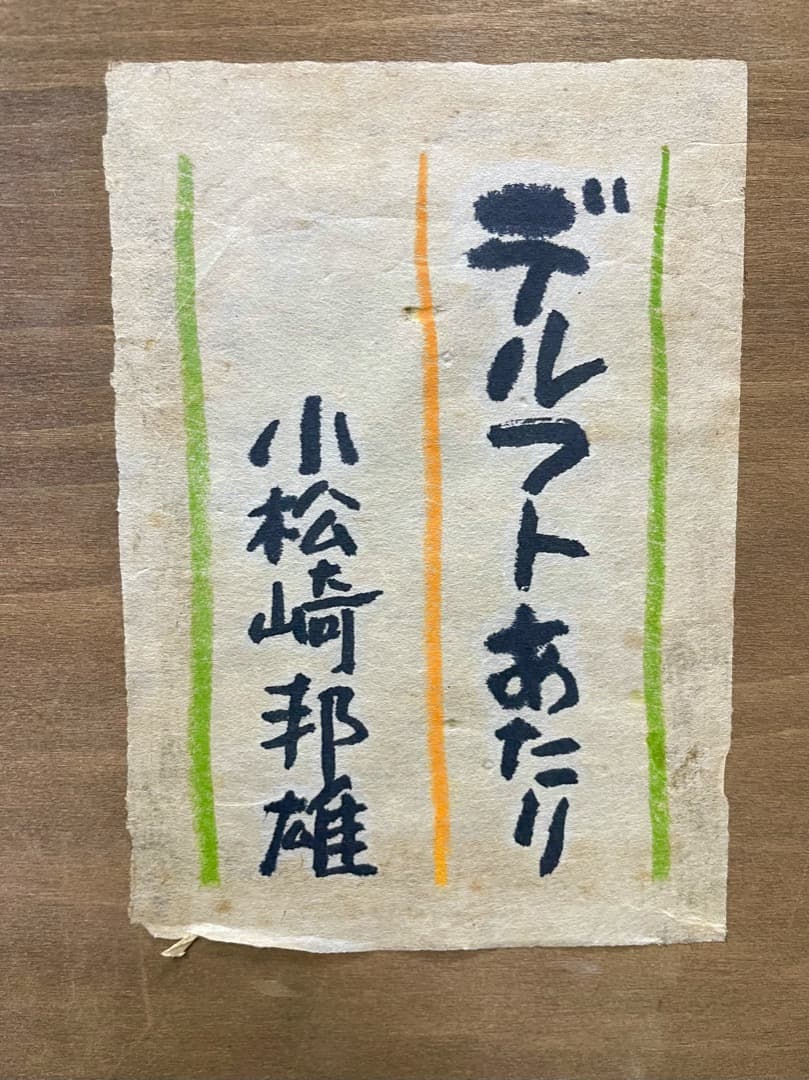 デルフトあたり
小松崎邦雄